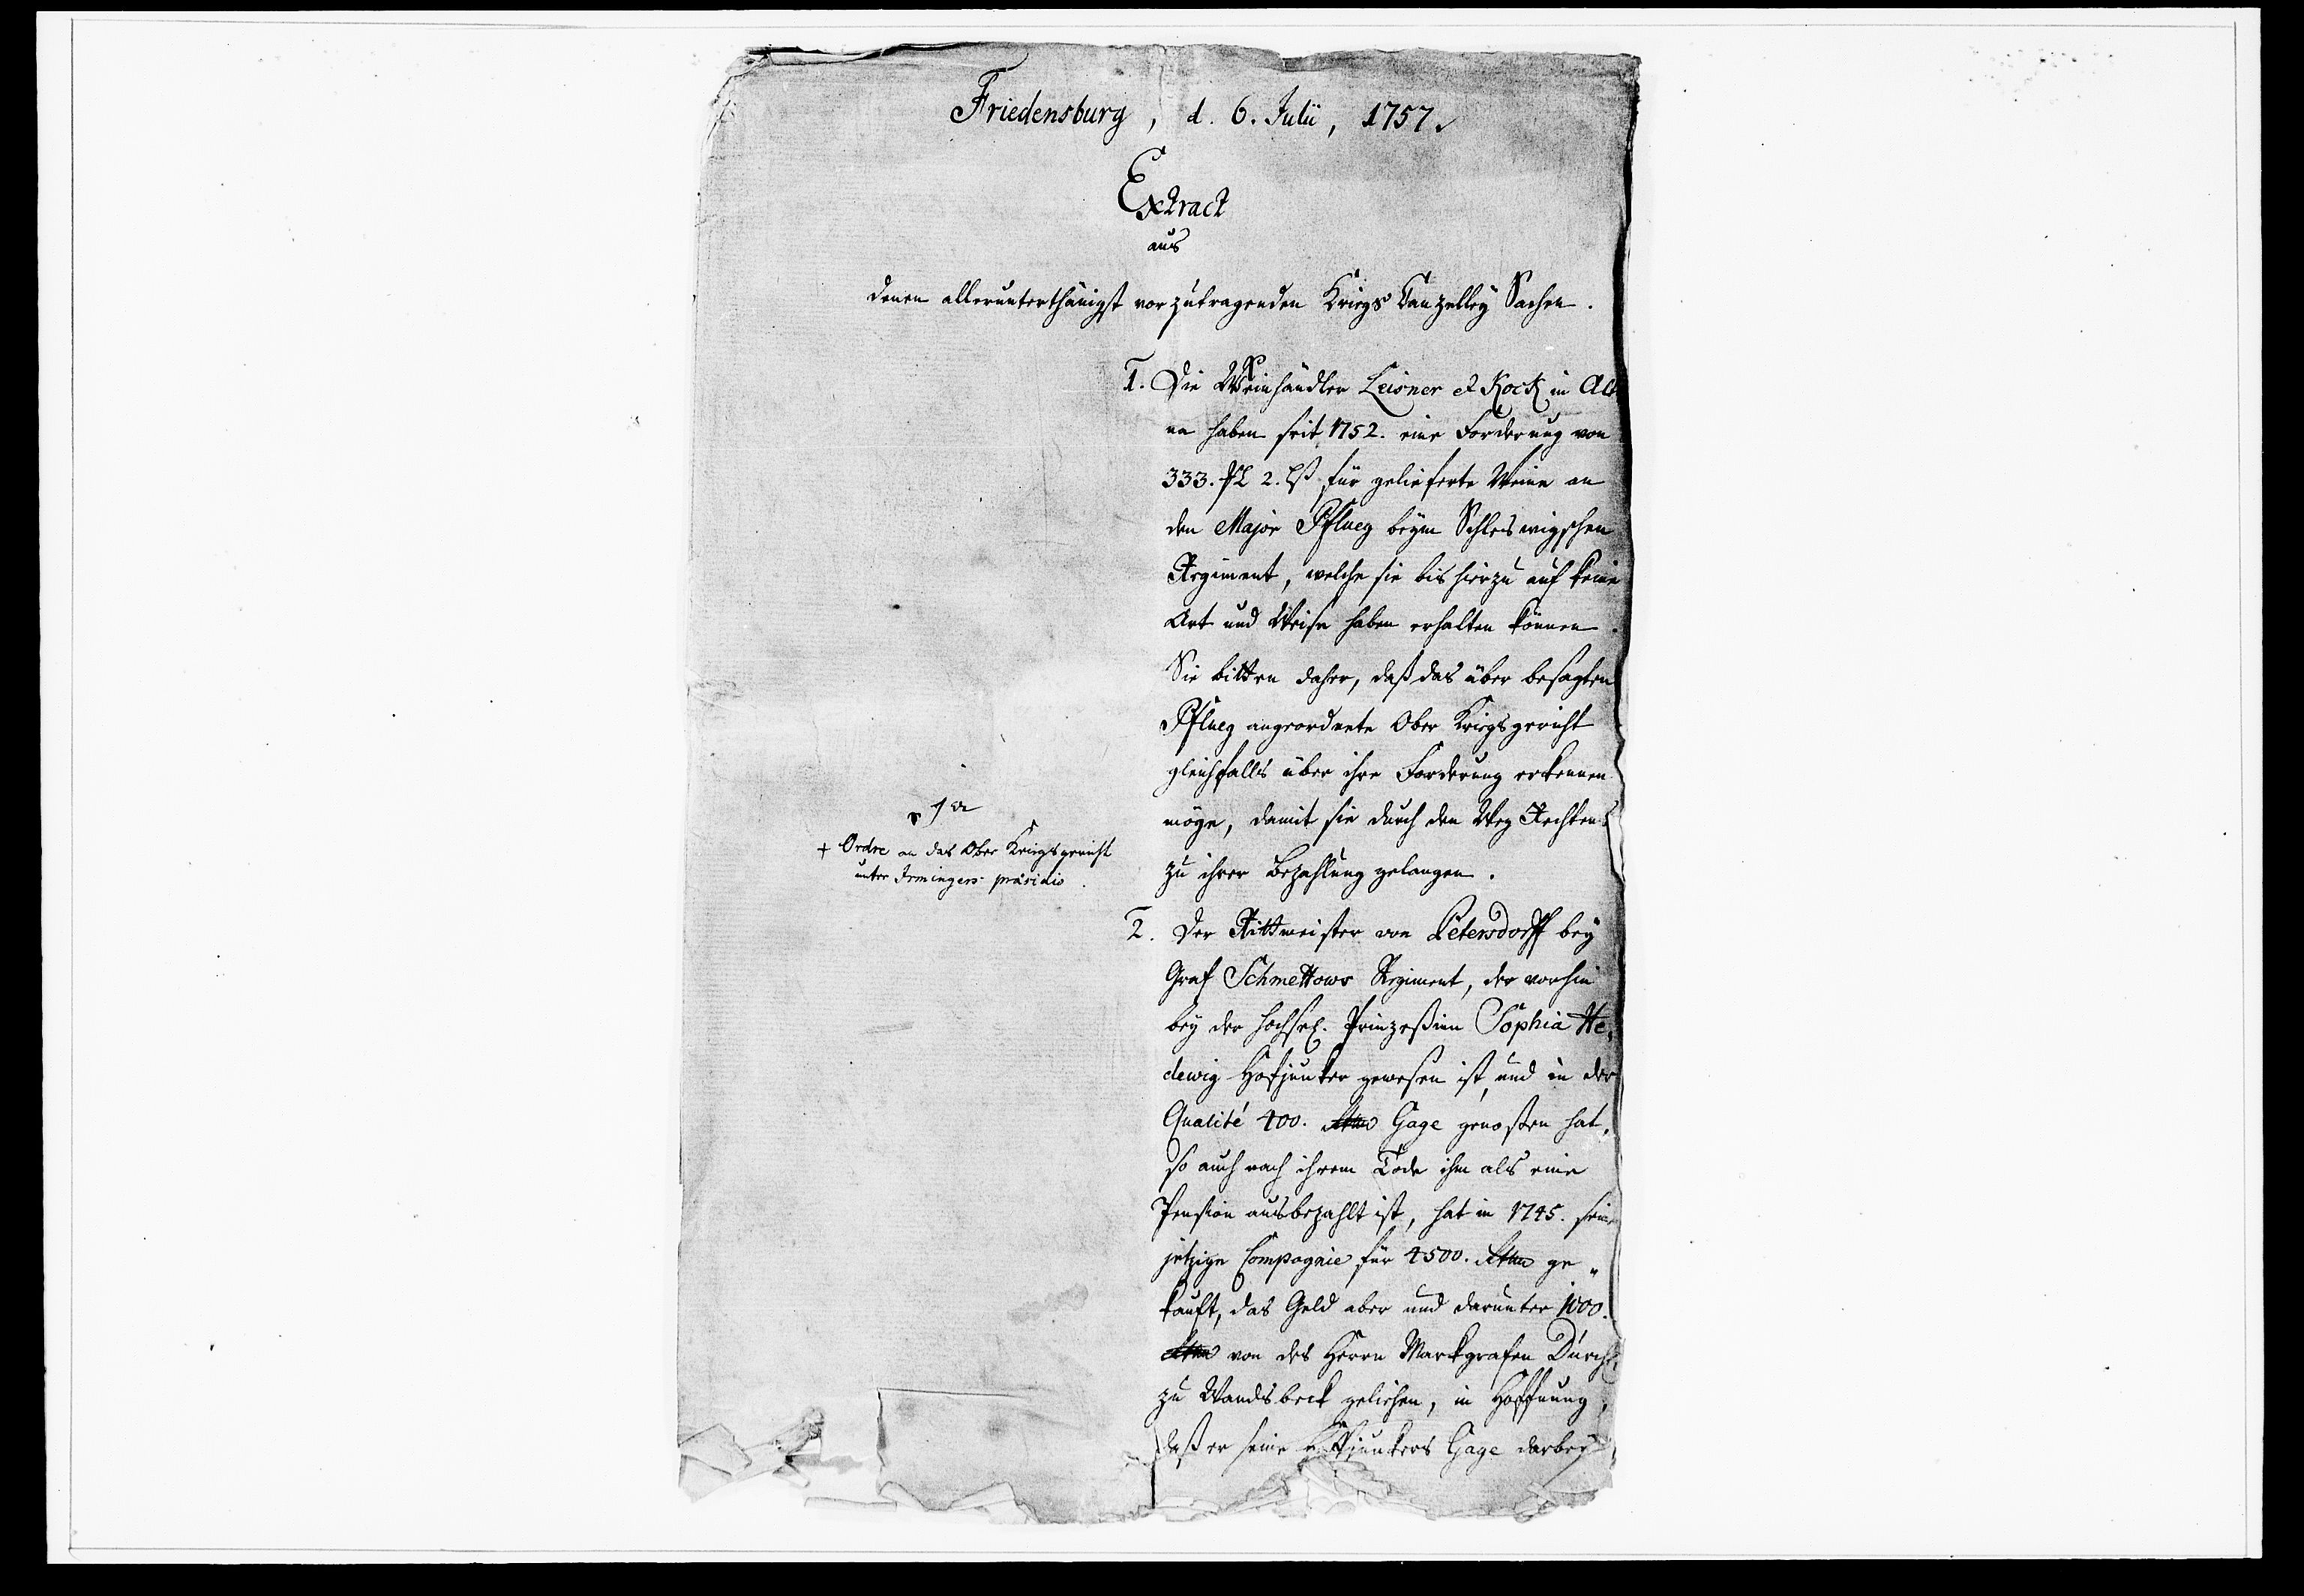 Friedensburg, d. 6. Julii, 1757.
Extract
aus
denen allerunterthänigst vorzutragenden Kriegs Canzelley Sachen.
1. Die Weinhändler Leisner et Kock in Alt
na haben seit 1752. eine Forderung von
333. 2. lß für gelieferte Weine an
den Major Pflueg beym Schleswigschen
Regiment, welche sie bis hierzu auf keine
Art und Weise haben erhalten können.
Sie bitten daher, daß das über besagten
Pflueg angeordnete Ober Kriegsgericht
gleichfalls über ihre Forderung erkennen
möge, damit sie durch den Weg Rechtens
zu ihrer Bezahlung gelangen.
ja
+ Ordre an das Ober Kriegsgericht
unter Irmingers præsidio.
2. Der Rittmeister von Petersdorff bey
Graf Schmettows Regiment, der vorhin
bey der hochsel. Prinzeßinn Sophia He,
dewig Hofjunker gewesen ist, und in der
Qualité 400. Rthlr Gage genoßen hat,
so auch nach ihrem Tode ihm als eine
Pension ausbezahlt ist, hat in 1745. seine
jetzige Compagnie für 4500. Rthlr ge„
kauft, das Geld aber und darunter 1000.
Rthlr von des Herrn Markgrafen Durchl.
zu Wandsbeck geliehen, in Hoffnung,
daß er seine Hofjunkers Gage darbey